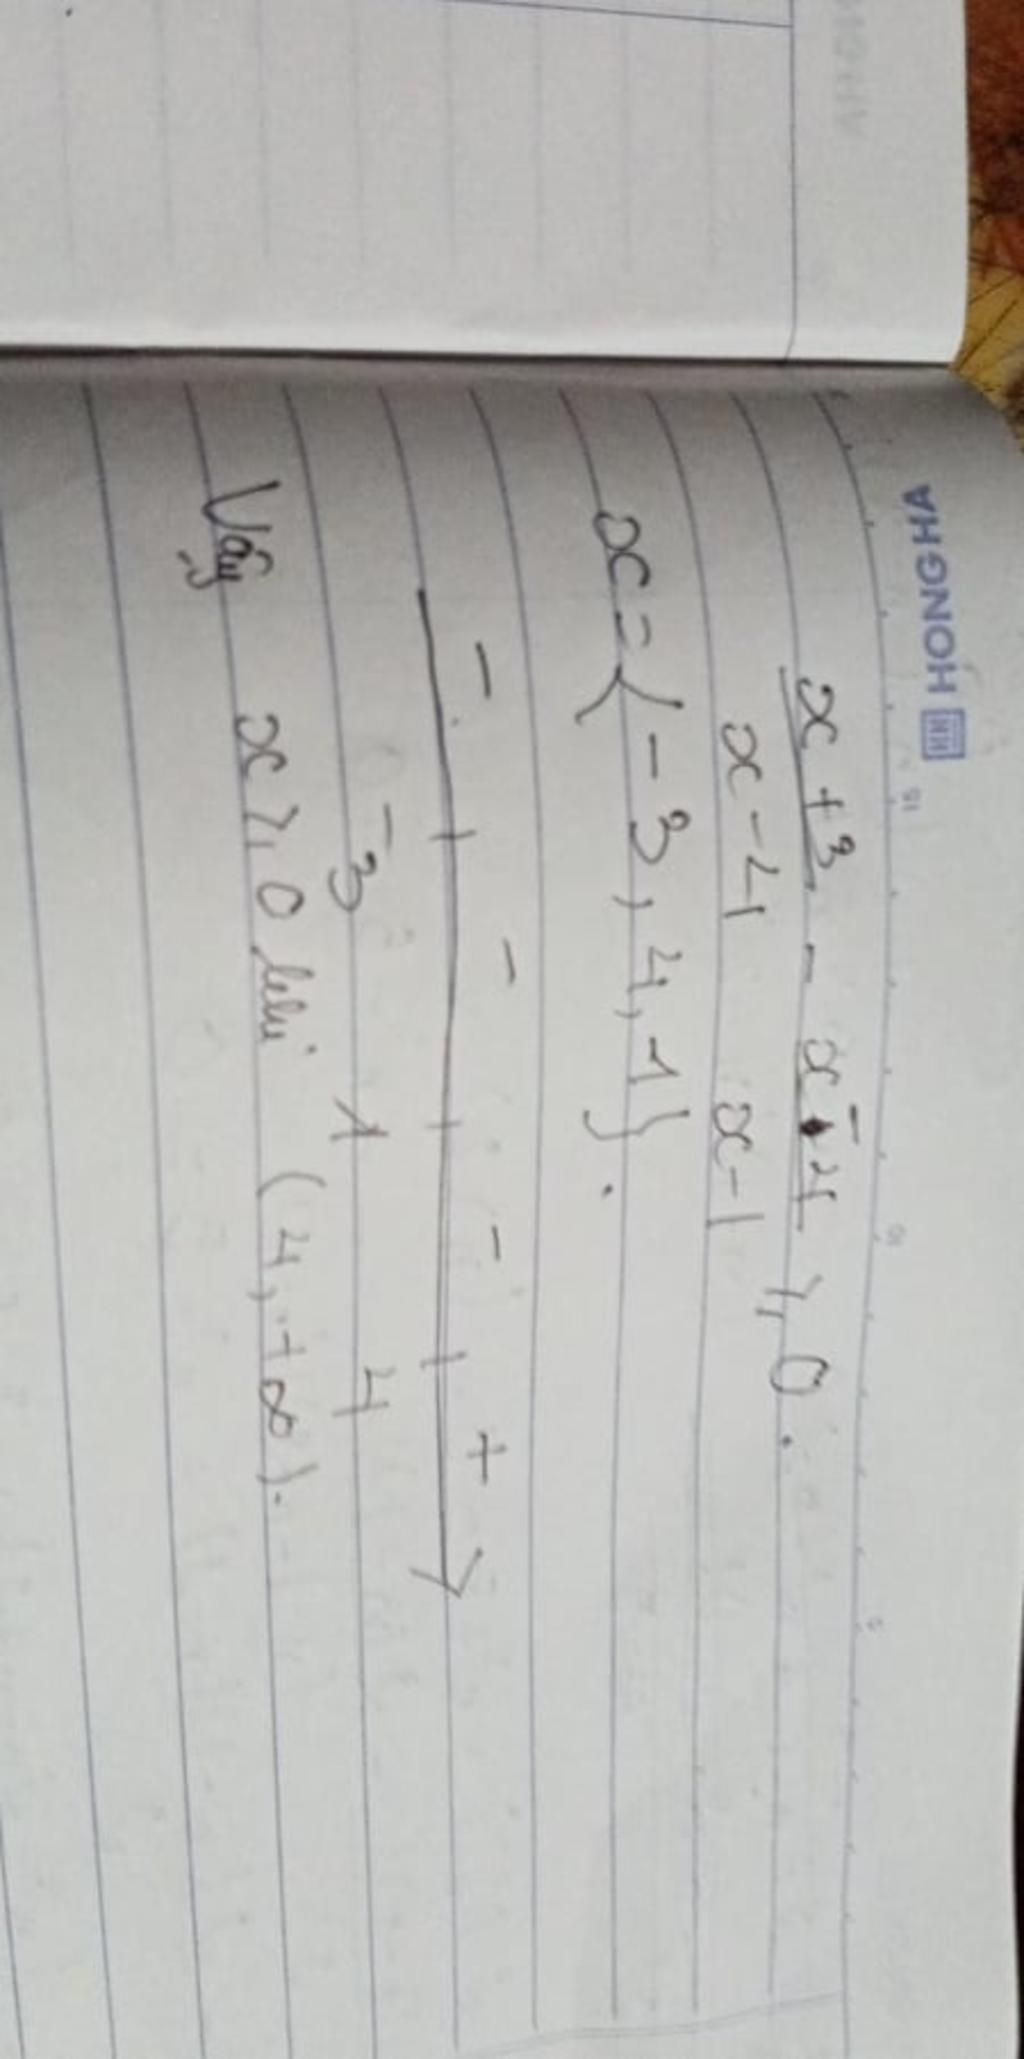 HONGHA
x + 3 - x - 4 ⩾ 0.
x - 4 x - 1
x = { -3, 4, 1 }.
- - - +
-3 1 4
Vậy x ⩾ 0 khi (4, +∞).